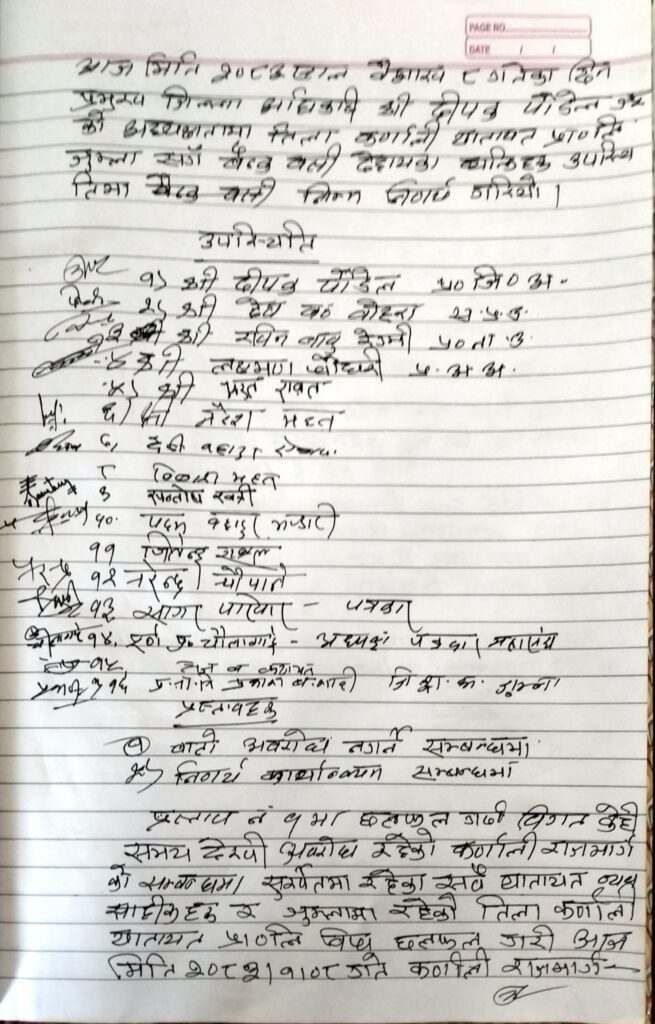 PAGE NO.
DATE / /
आज मिति २०८२ साल वैशाख ८ गतेका दिन
प्रमुख जिल्ला अधिकारी श्री दीपक पौडेल ज्यू
को अध्यक्षतामा तिला कर्णाली यातायत प्रा०लि०
जुम्ला सँग बैठक बसी देहायका व्यक्तिहरु उपस्थि
तिमा बैठक बसी निम्न निर्णय गरियो।
उपस्थिति
१) श्री दीपक पौडेल प्र०जि०अ.
२) श्री देव ब० बोहरा स.प्र.अ.
३ श्री रबिन बाबु रेग्मी प्र०ना.उ.
४ श्री लक्ष्मण चौधरी प्र.अ.अ.
५) श्री भरत रावत
६) श्री नरेश महत
देवी बहादुर
८ महत
९ सन्तोष खत्री
१०. पदम बहादुर भण्डारी
११ जितेन्द्र
१२ नरेन्द्र चौपाने
१३ सागर परियार - पत्रकार
१४. प्र० चौलागाई - अध्यक्ष पत्रकार महासंघ
१५
१६ जुम्ला
प्रस्तावहरु
१) बाटो अवरोध नगर्ने सम्बन्धमा
२) निर्णय कार्यान्वयन सम्बन्धमा
प्रस्ताव नं १ मा छलफल गर्दा विगत केही
समय देखी अवरोध रहेको कर्णाली राजमार्ग
को सम्बन्धमा सुर्खेतमा रहेका सबै यातायत व्यव
सायीहरु र जुम्लामा रहेको तिला कर्णाली
यातायत प्रा०लि बिच छलफल गरी आज
मिति २०८२।१।०८ गते कर्णाली राजमार्ग